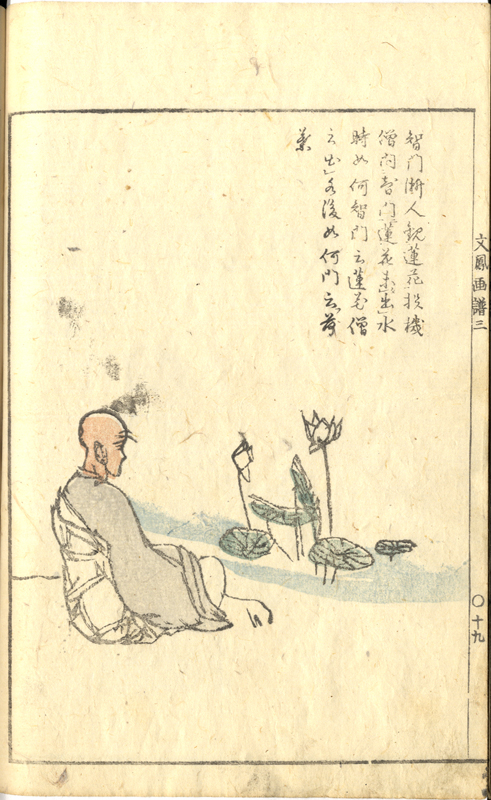 智門漸人観蓮花投機
僧问智门蓮花未出水
時如何智门云蓮花僧
云出水後如何门云荷
葉
文鳳画譜三
〇十九